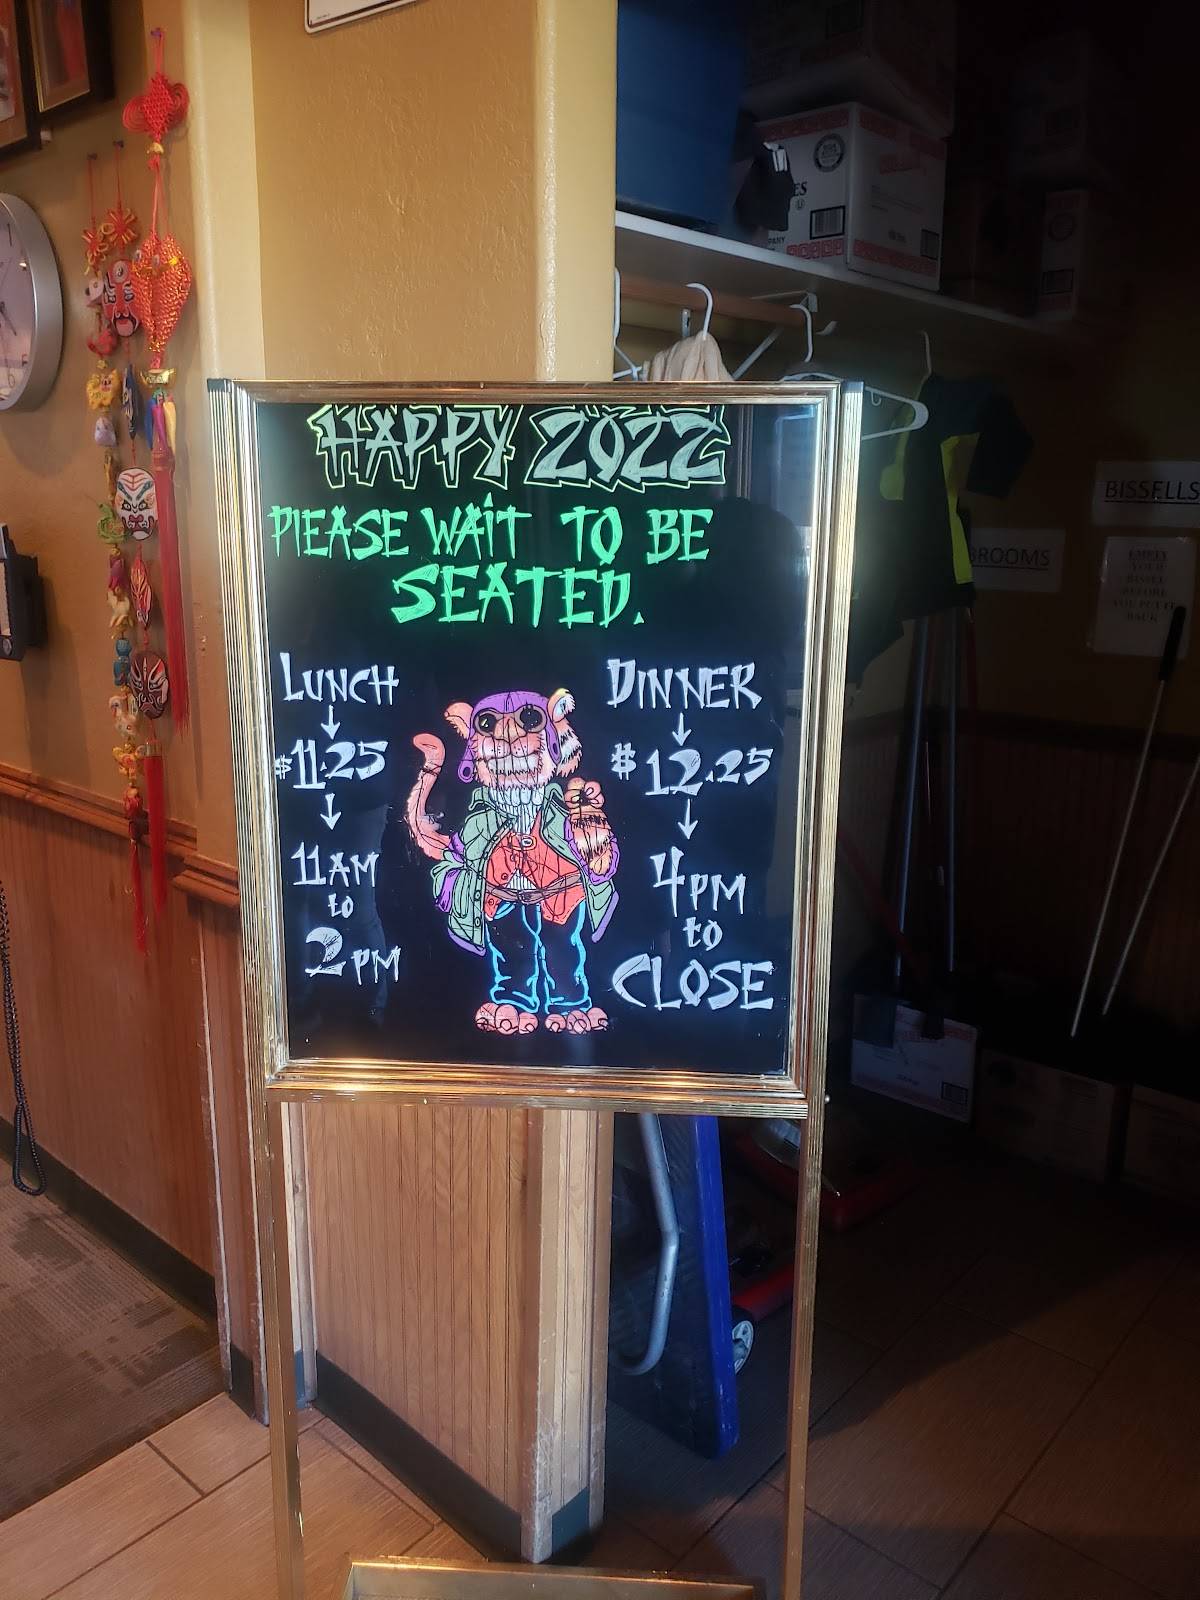 HAPPY 2022
PLEASE WAiT TO BE
SEATED.
LUNCH
$11.25
11AM
to
2PM
DINNER
$12.25
4PM
to
CLOSE
BISSELLS
BROOMS
EMPTY
YOUR
BISSEL
BEFORE
YOU PUT IT
BACK